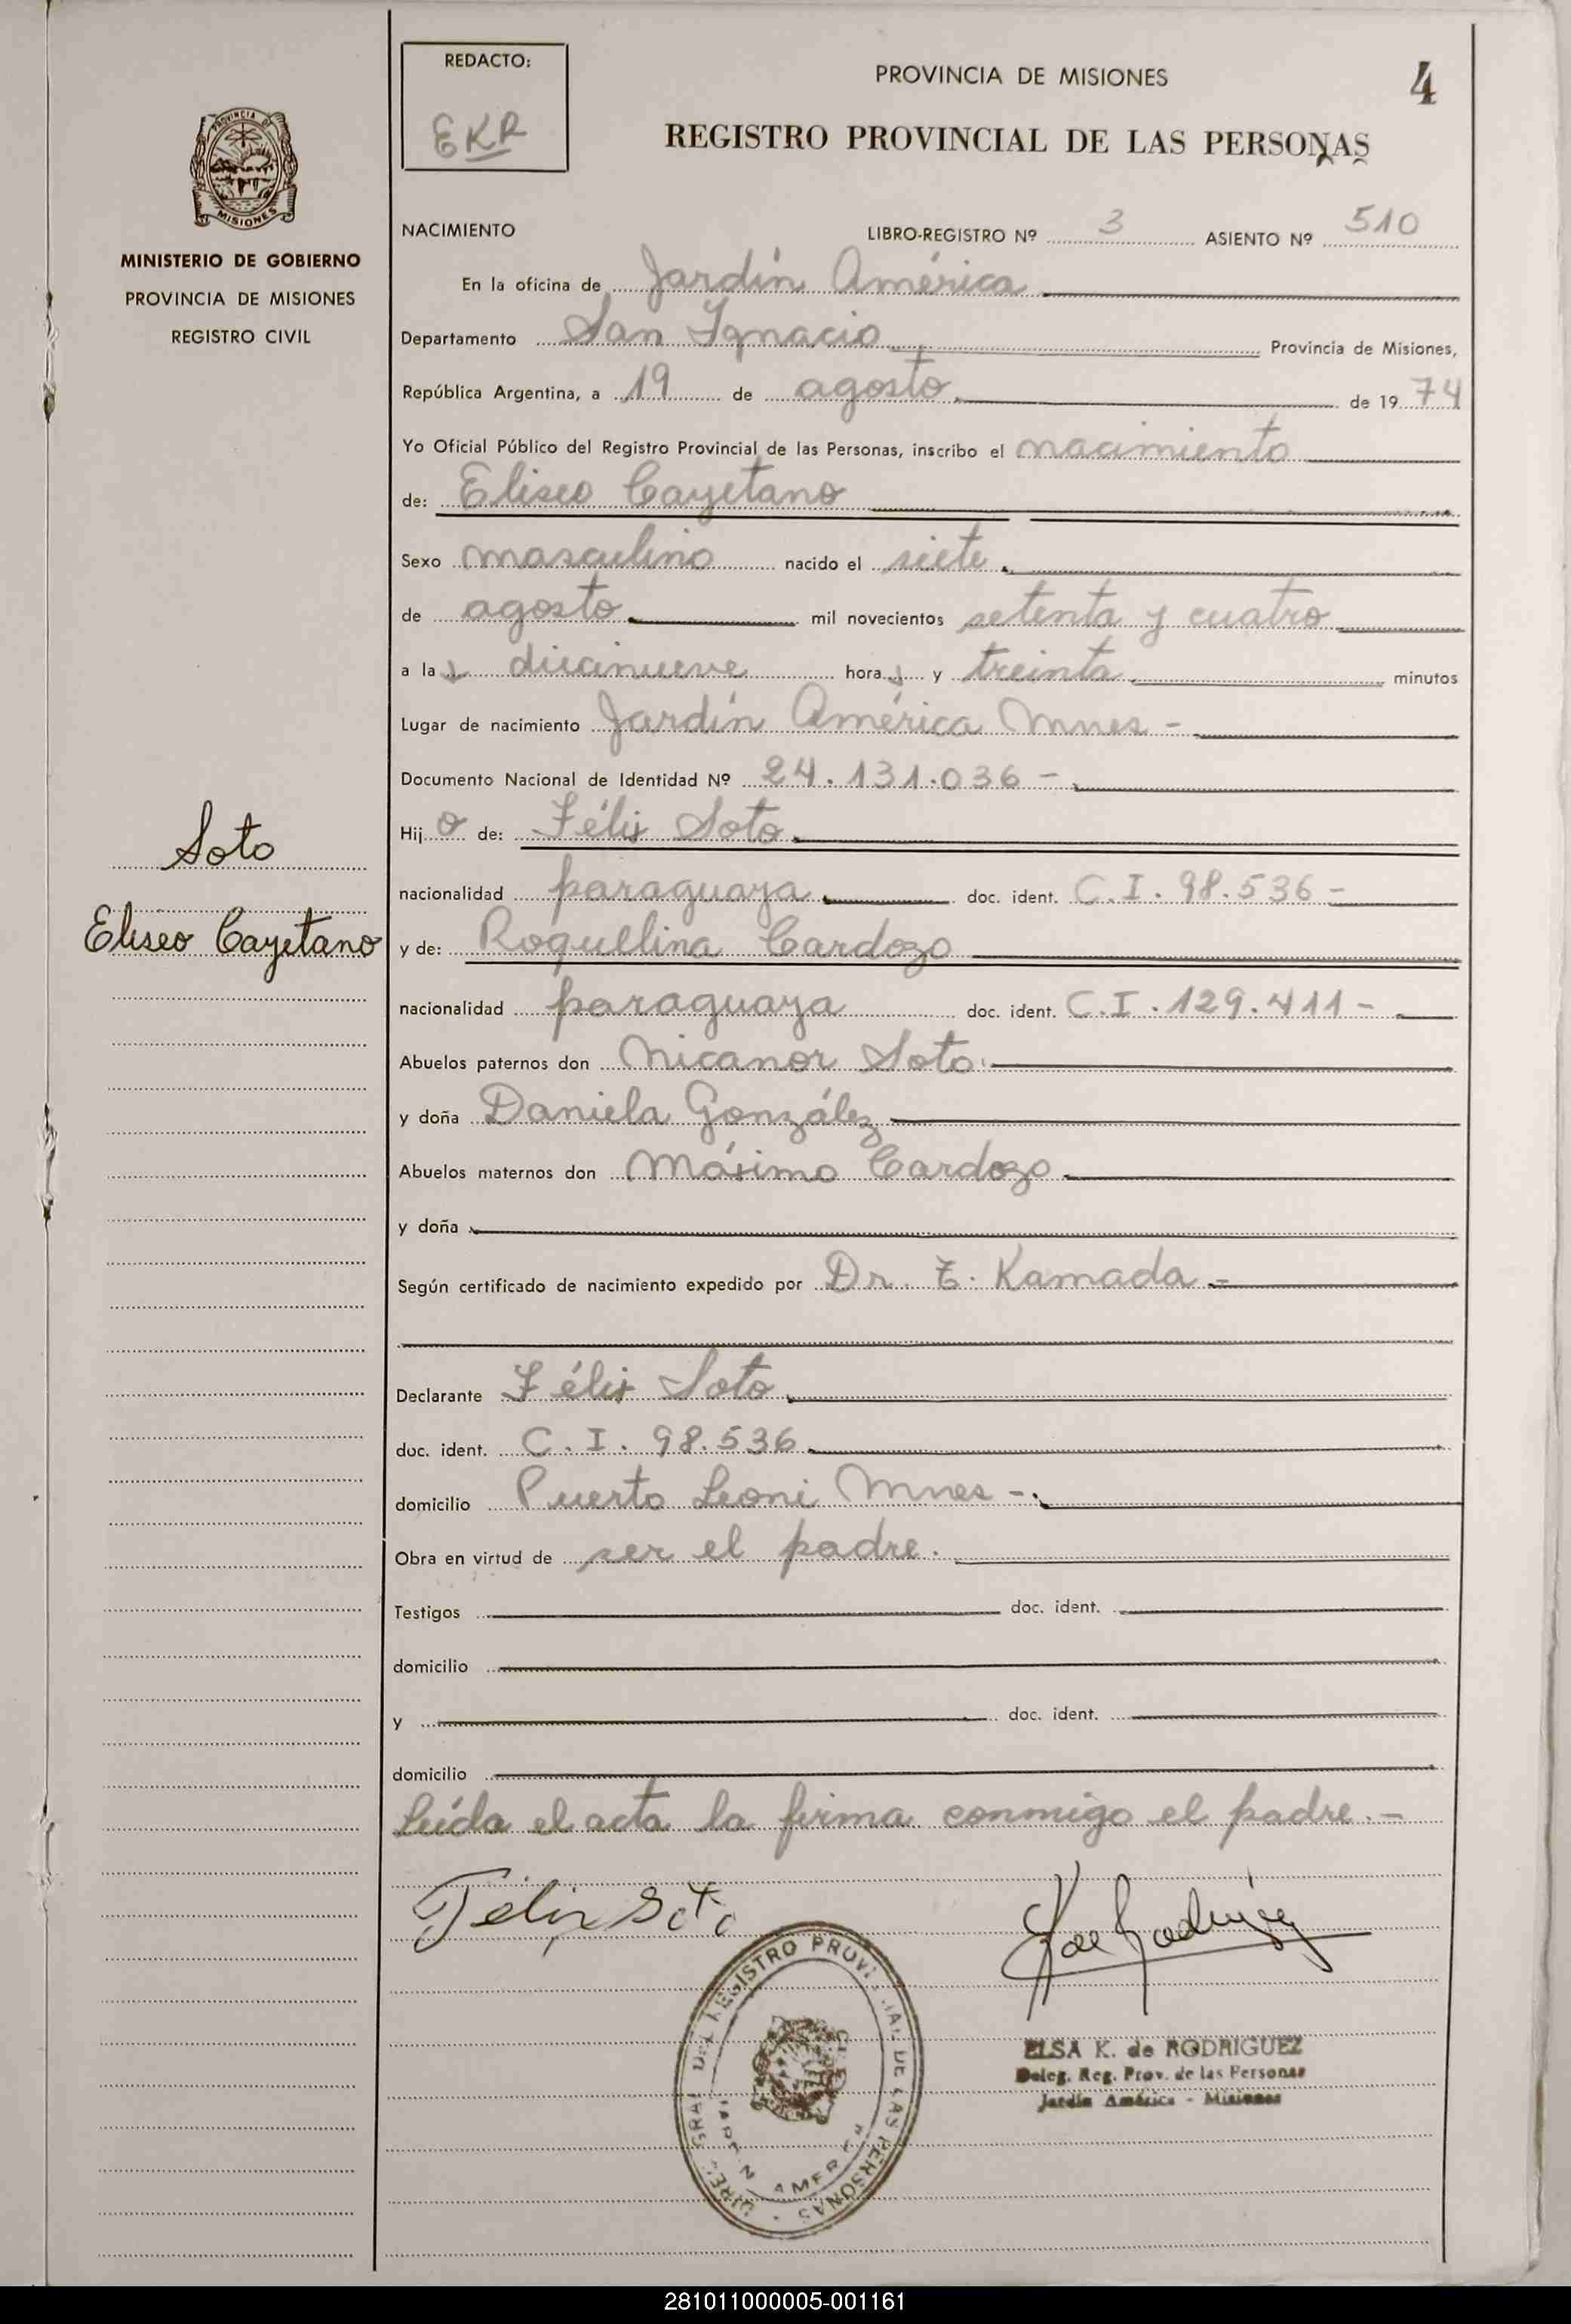 REDACTO:
EKR
PROVINCIA DE MISIONES
4
REGISTRO PROVINCIAL DE LAS PERSONAS
PROVINCIA DE
MISIONES
MINISTERIO DE GOBIERNO
PROVINCIA DE MISIONES
REGISTRO CIVIL
NACIMIENTO LIBRO-REGISTRO Nº 3 ASIENTO Nº 510
En la oficina de Jardín América
Departamento San Ignacio Provincia de Misiones,
República Argentina, a 19 de agosto de 19 74
Yo Oficial Público del Registro Provincial de las Personas, inscribo el nacimiento
de: Eliseo Cayetano
Sexo masculino nacido el siete
de agosto mil novecientos setenta y cuatro
a la s diecinueve hora s y treinta minutos
Lugar de nacimiento Jardín América Mnes -
Documento Nacional de Identidad Nº 24.131.036 -
Soto
Eliseo Cayetano
Hij o de: Félix Soto
nacionalidad paraguaya doc. ident. C.I. 98.536 -
y de: Roquelina Cardozo
nacionalidad paraguaya doc. ident. C.I. 129.411 -
Abuelos paternos don Nicanor Soto
y doña Daniela González
Abuelos maternos don Máximo Cardozo
y doña
Según certificado de nacimiento expedido por Dr. Kamada -
Declarante Félix Soto
doc. ident. C.I. 98.536
domicilio Puerto Leoni Mnes -
Obra en virtud de ser el padre.
Testigos doc. ident.
domicilio
y doc. ident.
domicilio
Leída el acta la firma conmigo el padre. -
Félix Soto
REGISTRO DE LAS PERSONAS
ELSA K. de RODRIGUEZ
Deleg. Reg. Prov. de las Personas
Jardín América - Misiones
281011000005-001161